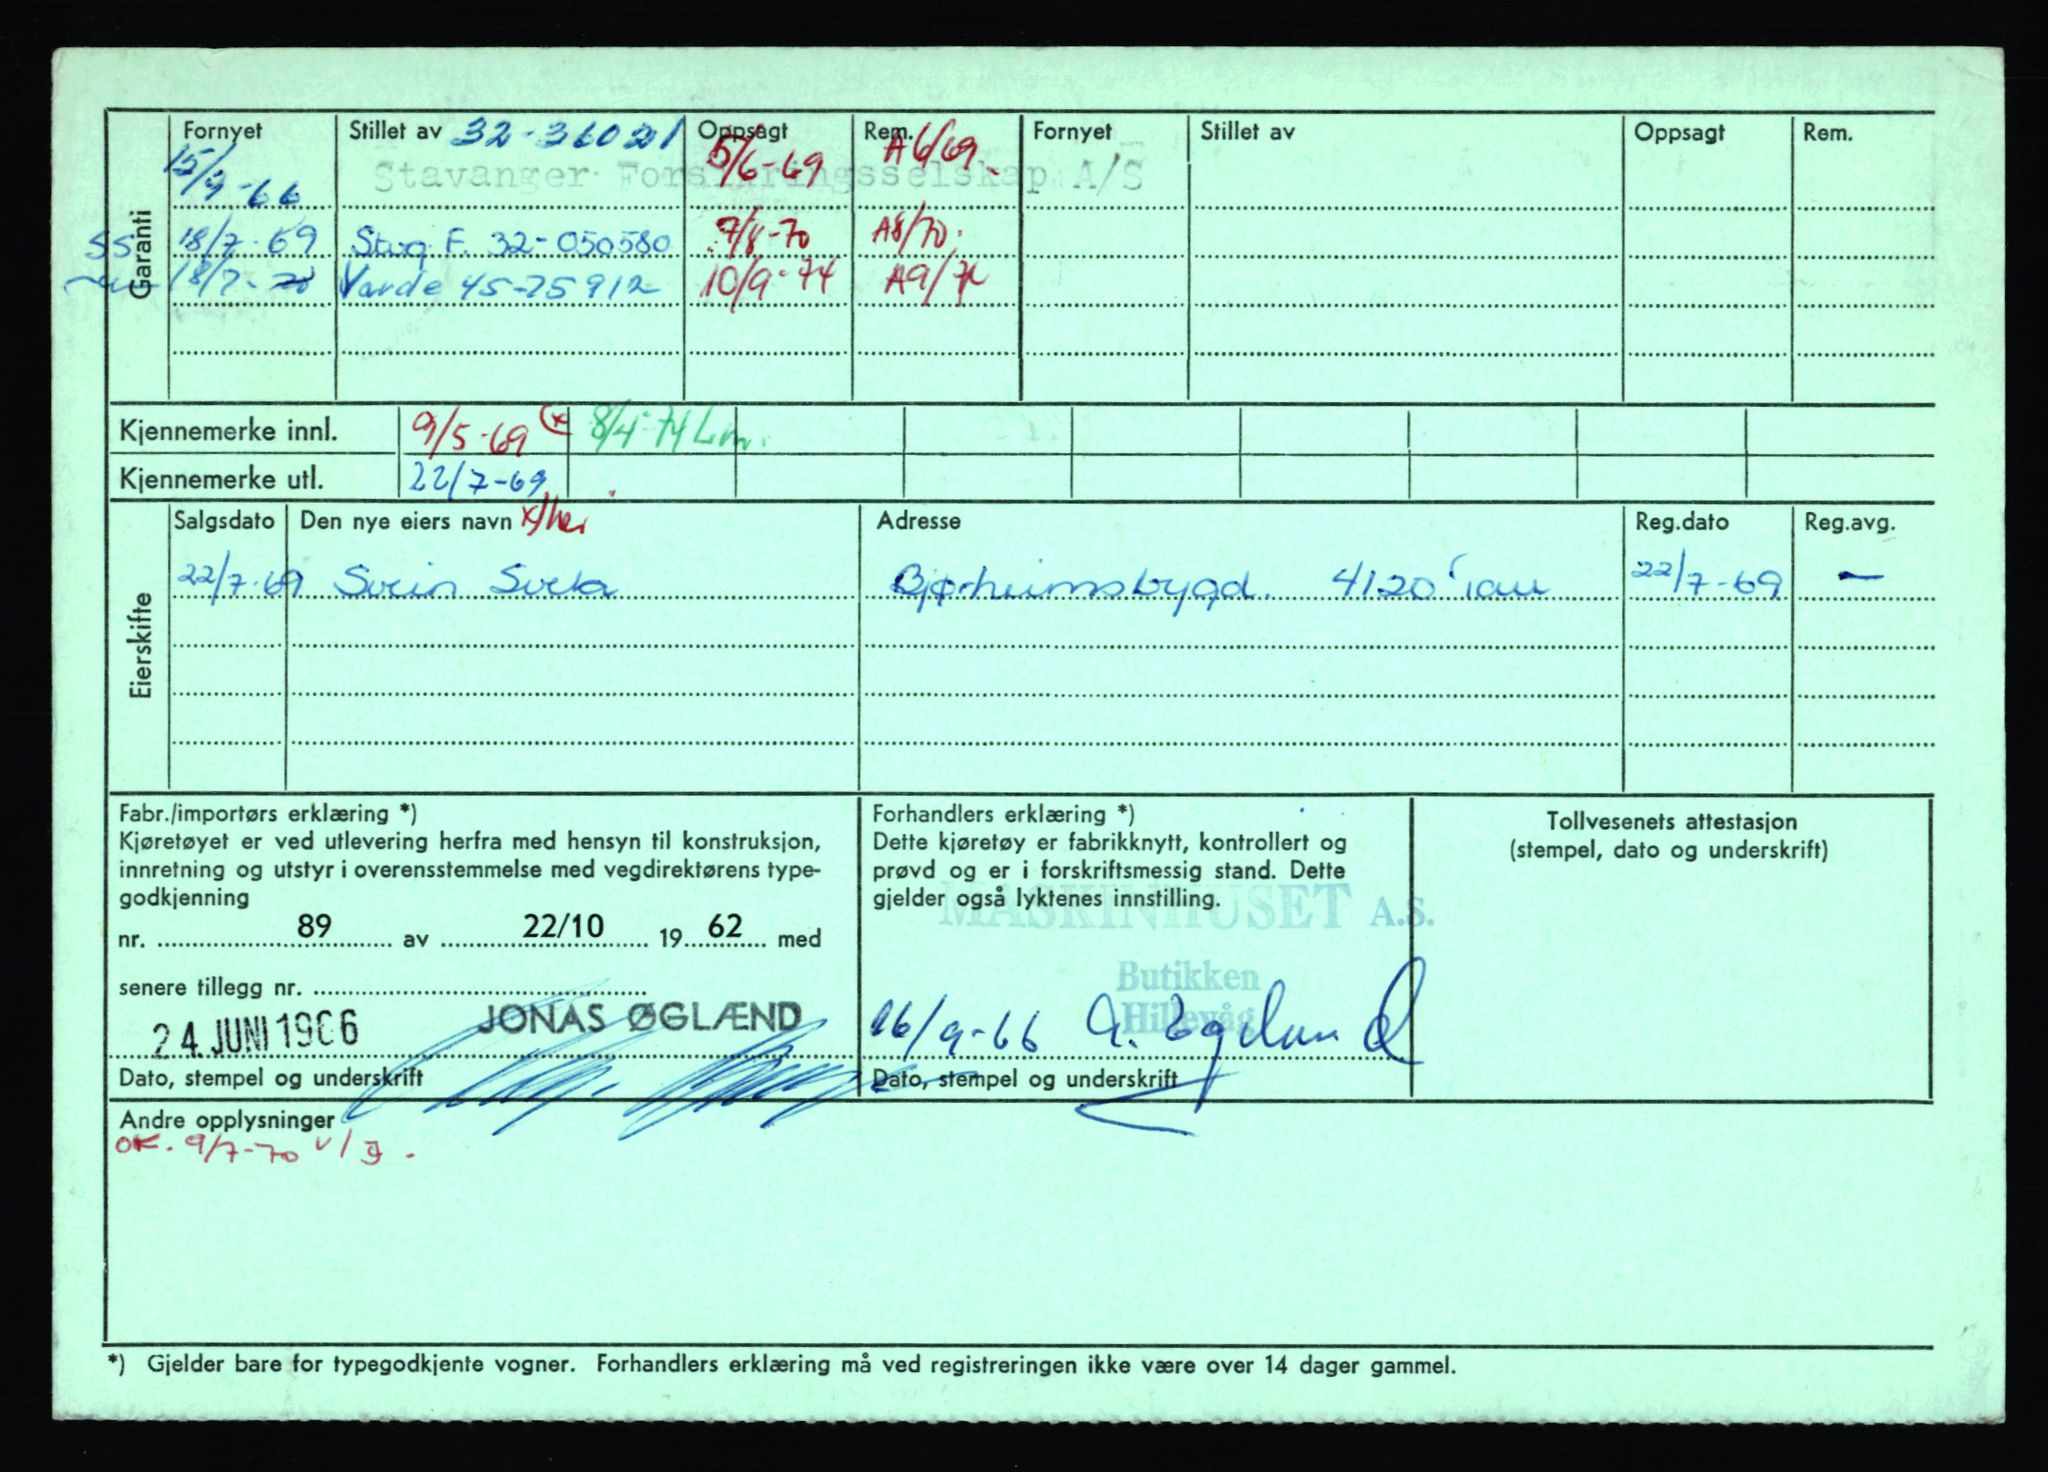 Garanti
Fornyet Stillet av 32-36021 Oppsagt Rem. Fornyet Stillet av Oppsagt Rem.
15/9-66 Stavanger Forsikringsselskap A/S 5/6-69 A6/69
SS 18/7-69 Stvg F. 32-050580 7/8-70 A8/70.
18/7-70 Varde 45-25912 10/9-74 A9/74
Kjennemerke innl. 9/5-69 (x 8/4-74
Kjennemerke utl. 22/7-69
Eierskifte
Salgsdato Den nye eiers navn Adresse Reg.dato Reg.avg.
22/7-69 Svein Svela Bjørheimsbygd. 4120 Tau 22/7-69 —
Fabr./importørs erklæring *)
Kjøretøyet er ved utlevering herfra med hensyn til konstruksjon,
innretning og utstyr i overensstemmelse med vegdirektørens type-
godkjenning
nr. 89 av 22/10 19 62 med
senere tillegg nr.
24. JUNI 1966 JONAS ØGLÆND
Dato, stempel og underskrift
Forhandlers erklæring *)
Dette kjøretøy er fabrikknytt, kontrollert og
prøvd og er i forskriftsmessig stand. Dette
gjelder også lyktenes innstilling.
MASKINHUSET A.S.
Butikken
Hillevåg
16/9-66
Dato, stempel og underskrift
Tollvesenets attestasjon
(stempel, dato og underskrift)
Andre opplysninger
OK. 9/7-70
*) Gjelder bare for typegodkjente vogner. Forhandlers erklæring må ved registreringen ikke være over 14 dager gammel.